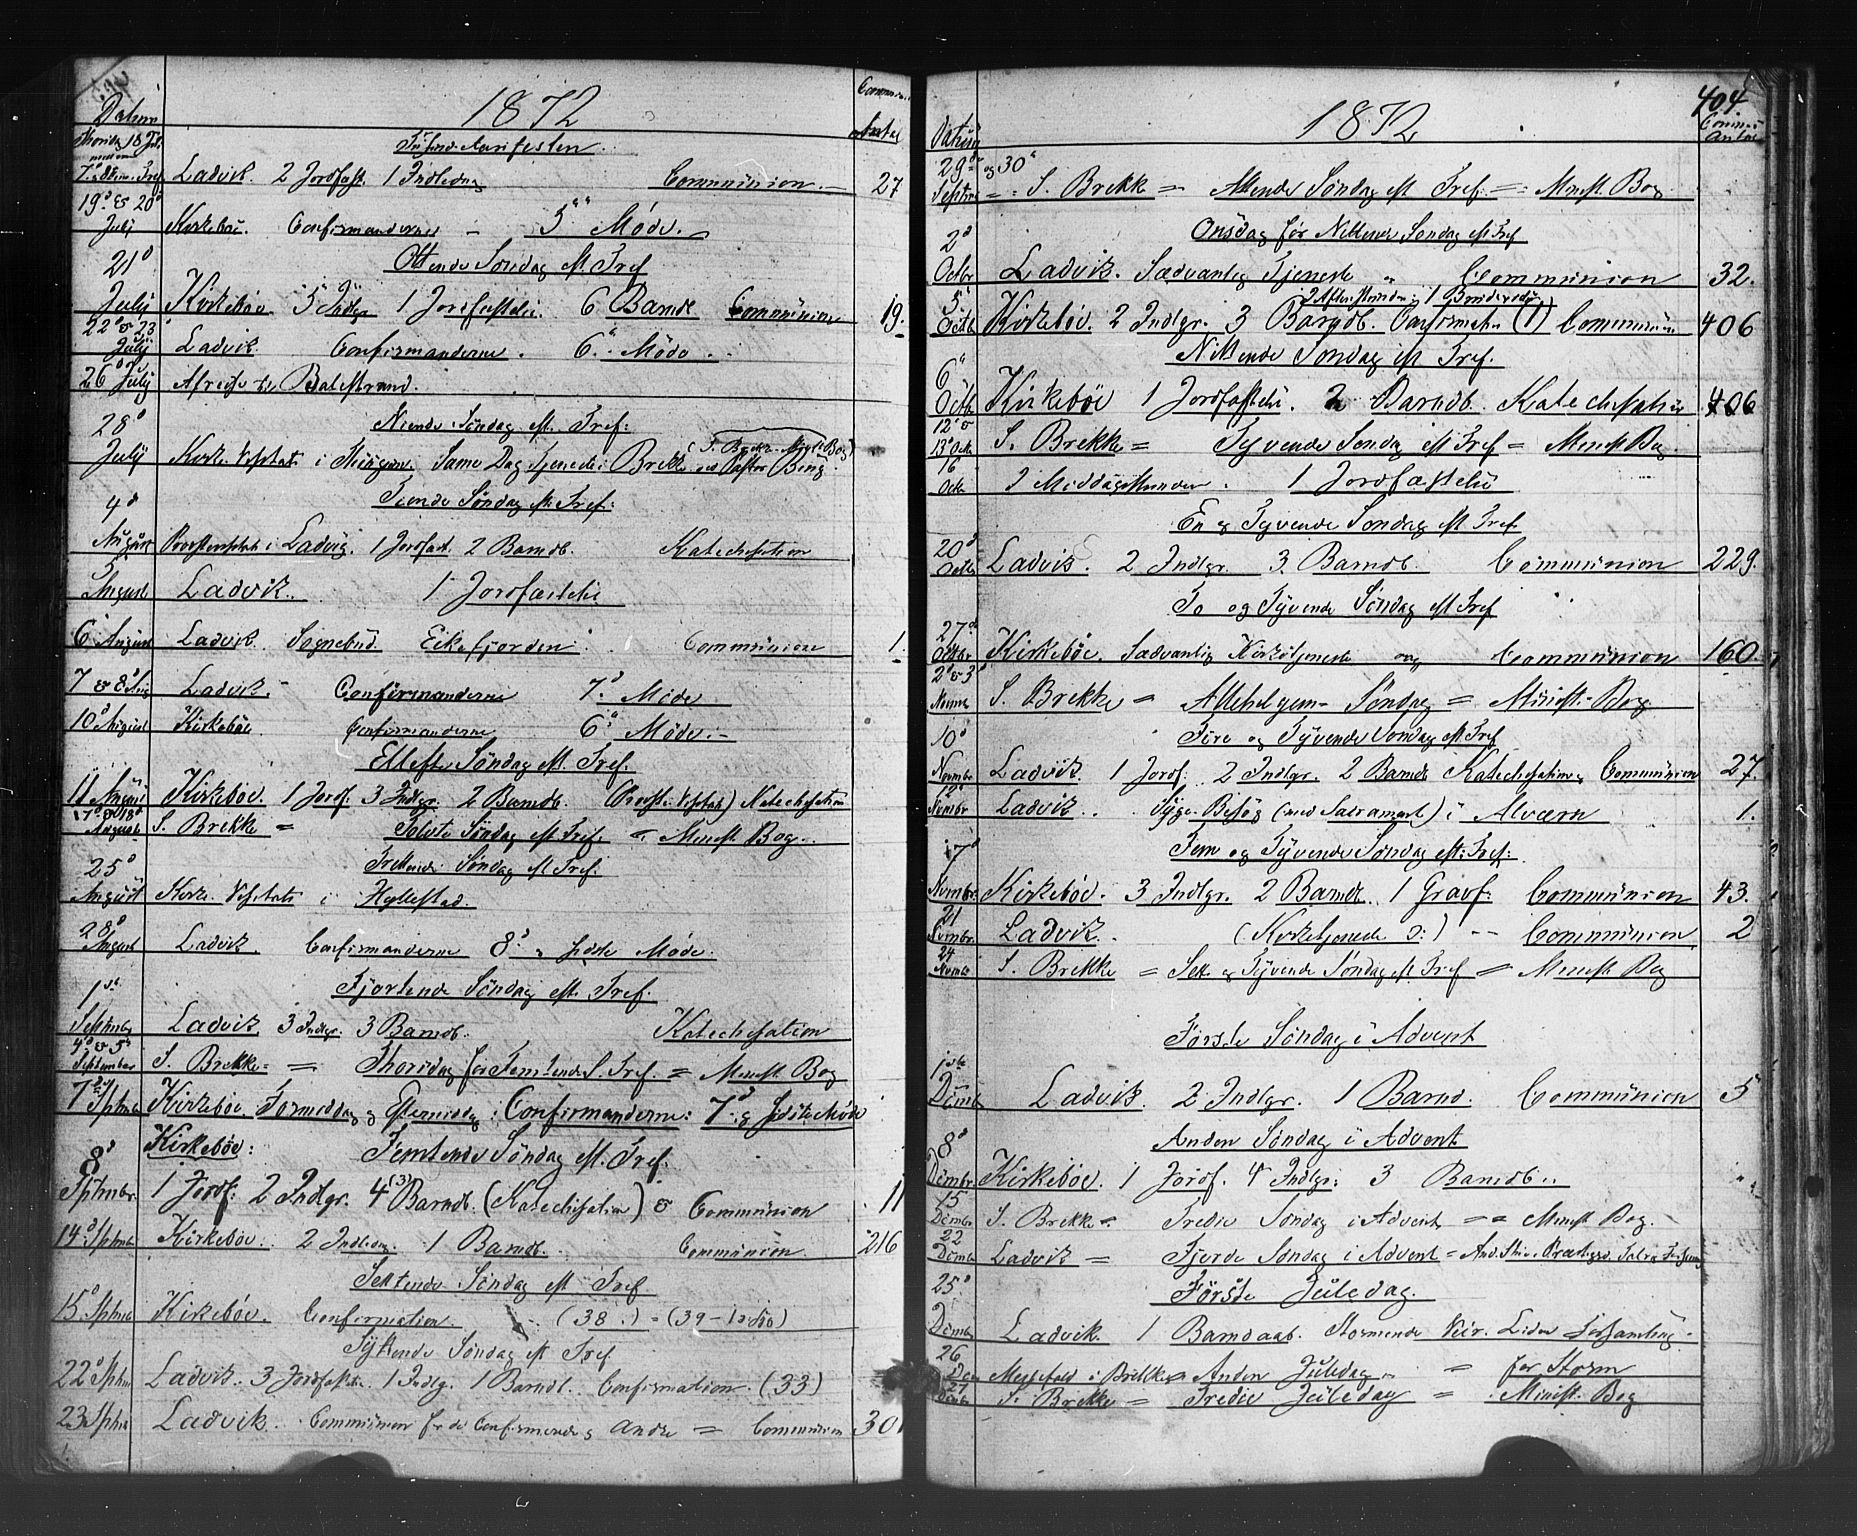 1872
Datum
Commun. Antal
Ladvik. 2 Jordfast. 1 Indledng Communion 27
19d & 20d July Kirkeböe. Confirmanderne - 5te Möde.
21d Ottende Söndag eft Tref
July Kirkeböe 5 Indlgr 1 Jordfæstelse. 6 Barndb Communion 19
22 & 23 July Ladvik. Confirmanderne. 6te Möde.
26 July Afreise til Balestrand.
28d Niende Söndag eft. Tref:
July Kirke Visitats i Klingen. Same Dag Tjeneste i Brekke ved Pastor Bing. (S. Brekke Minist: Bog)
4d Tiende Söndag eft. Tref:
August Provstevisitats i Ladvig. 1 Jordfast. 2 Barndb. Katechisation
5 August Ladvik. 1 Jordfæstelse
6 August Ladvik. Sognebud Eikefjorden Communion 1.
7 & 8d Aug Ladvik. Confirmanderne 7d Möde
10d August Kirkeböe. Confirmanderne 6te Möde.
Ellefte Söndag eft. Tref.
11 August Kirkeböe. 1 Jordf. 3 Indlgr. 2 Barndb. (Provste Visitats) Katechisation
17d & 18d August S. Brekke = Tolvte Söndag eft Tref. = Minist Bog.
Trettende Söndag eft Tref.
25d August Kirke Visitats i Hyllestad.
28d August Ladvik. Confirmanderne 8d & sidste Möde.
Fjortende Söndag eft. Tref.
1ste Septmbr Ladvik 3 Indlgr. 3 Barndb. Katechisation
4d & 5te September S. Brekke = Thorsdag før Femtende S. Tref. = Minist Bog
7 Sptmbr Kirkeböe Formiddag og Eftermiddag: Confirmanderne: 7d & sidste Möde
Kirkeböe: Femtende Söndag eft. Tref.
8d Sptmbr. 1 Jordf: 2 Indlgr. 4 (3) Barndb. (Katechisation) & Communion 11
14d Sptmbr Kirkeböe. 2 Indledng. 1 Barndb. Communion 216
Sextende Söndag eft Tref
15d Sptmb Kirkeböe. Confirmation. (38.) = (39 - 1 )
Syttende Söndag eft Tref
22d Sptm Ladvik. 3 Jordfæstelse. 1 Indlg. 1 Barndb. Confirmation. (33)
23 Sptm Ladvik. Communion for de Confirmerede & Andre = Communion 301
404
1872
Datum
Commun Antal
29de og 30te Septmb S. Brekk = Attende Söndag eft Tref = Minist Bog
Onsdag før Nittende Söndag eft Tref
2d Octbr Ladvik. Sædvanlig Tjeneste Communion 32.
5te Octb Kirkeböe. 2 Indlgr. 3 Barndb. Confirmation (1) Communion 406
Nittende Söndag eft Tref.
6te Octb Kirkeböe 1 Jordfæstelse. 2 Barndb. Katechisation 406
12te & 13d Octb S. Brekke = Tyvende Söndag eft Tref = Minist Bog.
16 Octb I Middagsstunden. 1 Jordfæstelse
En og Tyvende Söndag eft Tref.
20d Octbr Ladvik. 2 Indlgr. 3 Barndb. Communion 229.
To og Tyvende Söndag eft Tref
27de Octbr Kirkeböe. Sædvanlig Kirketjeneste og Communion 160.
2d & 3d Novmb S. Brekke = Allehelgens Söndag = Minist. Bog.
10d Fire og Tyvende Söndag eft Tref
Novmbr Ladvik. 1 Jordf: 2 Indlgr. 2 Barndb Katechisation & Communion 27.
Novmbr Ladvik. Syge Besög (med Sacrament) i Alværn 1.
Fem og Tyvende Söndag eft: Tref:
17d Novmbr. Kirkeböe. 3 Indlgr. 2 Barndb. 1 Gravf: Communion 43.
21 Novmbr. Ladvik. (Kirketjeneste ) -- Communion 2
24 Novmb S. Brekke = Sex og Tyvende Söndag eft Tref = Minist Bog
Første Söndag i Advent
1ste Decmb Ladvik. 2 Indlgr. 1 Barnd. Communion 5
Anden Söndag i Advent
8d Decmbr. Kirkeböe. 1 Jordf. 4 Indlgr: 3 Barndb.
15 Decmbr. S. Brekke = Tredie Söndag i Advent = Minist Bog.
22 Decmbr Ladvik = Fjerde Söndag i Advent =
25d Første Juledag.
Decmb Ladvik. 1 Barndaab. Stormende Veir. Liden Forsamling.
26 Dec Messefald i Brekke Anden Juledag = for Storm
27 Decmbr S. Brekke = Tredie Juledag = Minist. Bog